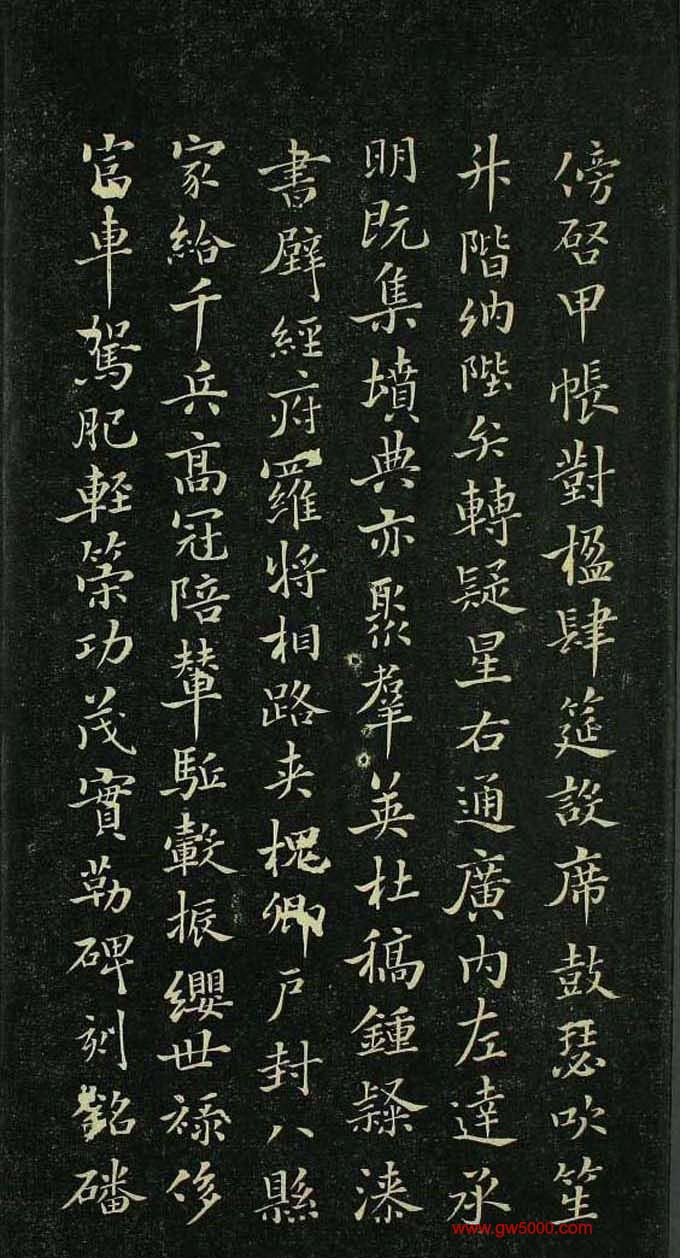 傍啓甲帳對楹肆筵設席鼓瑟吹笙
升階納陛弁轉疑星右通廣內左達承
明既集墳典亦聚羣英杜稿鍾隸漆
書壁經府羅將相路夾槐卿戶封八縣
家給千兵高冠陪輦驅轂振纓世祿侈
富車駕肥輕策功茂實勒碑刻銘磻
www.gw5000.com